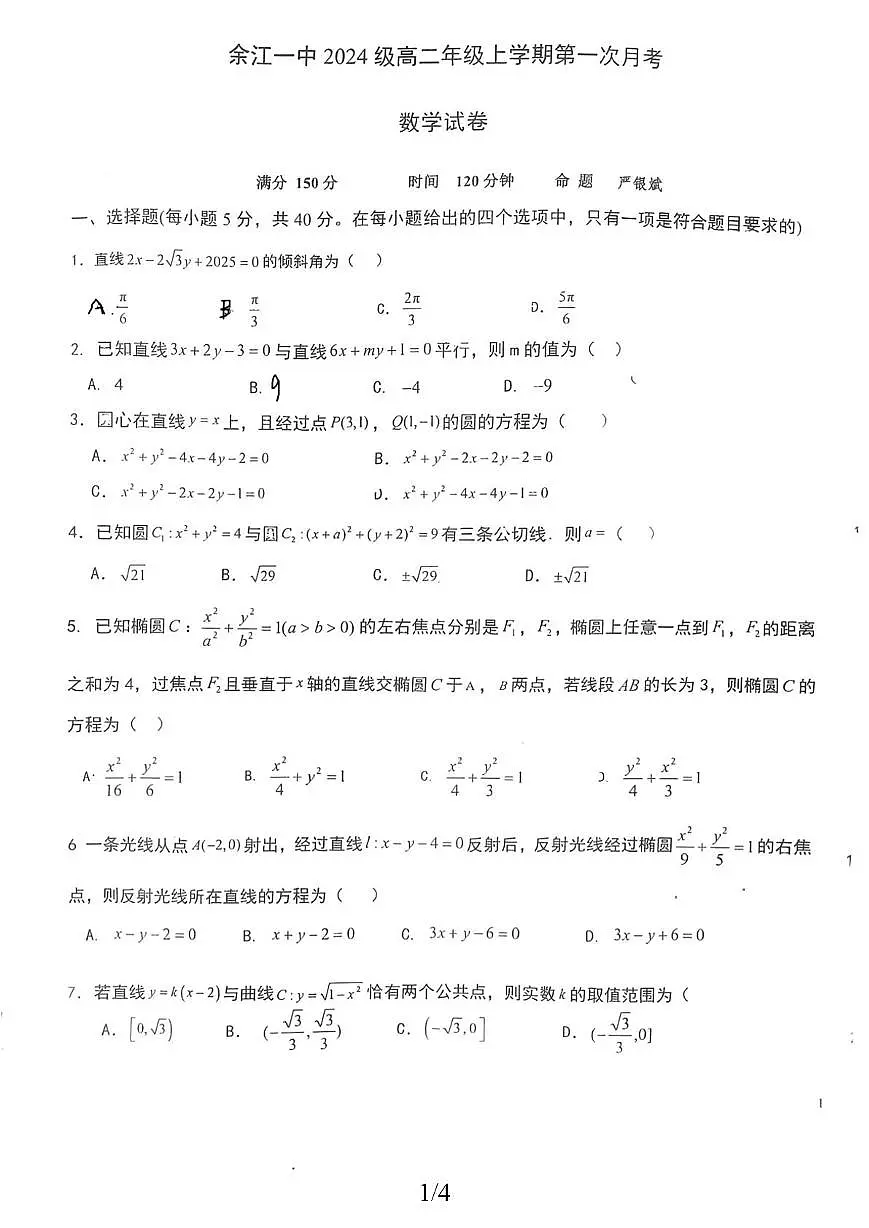 余江一中 2024 级高二年级上学期第一次月考
数学试卷
满分 150 分 时间 120 分钟 命 题 严银斌
一、选择题(每小题 5 分，共 40 分。在每小题给出的四个选项中，只有一项是符合题目要求的)
1. 直线 2x−2√3y+2025=0 的倾斜角为（ ）
A. π/6 B. π/3 C. 2π/3 D. 5π/6
2. 已知直线 3x+2y−3=0 与直线 6x+my+1=0 平行，则 m 的值为（ ）
A. 4 B. 9 C. −4 D. −9
3. 圆心在直线 y=x 上，且经过点 P(3,1)，Q(1,−1) 的圆的方程为（ ）
A. x²+y²−4x−4y−2=0 B. x²+y²−2x−2y−2=0
C. x²+y²−2x−2y−1=0 D. x²+y²−4x−4y−1=0
4. 已知圆 C₁:x²+y²=4 与圆 C₂:(x+a)²+(y+2)²=9 有三条公切线. 则 a=（ ）
A. √21 B. √29 C. ±√29 D. ±√21
5. 已知椭圆 C：x²/a²+y²/b²=1(a>b>0) 的左右焦点分别是 F₁，F₂，椭圆上任意一点到 F₁，F₂ 的距离
之和为 4，过焦点 F₂ 且垂直于 x 轴的直线交椭圆 C 于 A，B 两点，若线段 AB 的长为 3，则椭圆 C 的
方程为（ ）
A. x²/16+y²/6=1 B. x²/4+y²=1 C. x²/4+y²/3=1 D. y²/4+x²/3=1
6 一条光线从点 A(−2,0) 射出，经过直线 l:x−y−4=0 反射后，反射光线经过椭圆 x²/9+y²/5=1 的右焦
点，则反射光线所在直线的方程为（ ）
A. x−y−2=0 B. x+y−2=0 C. 3x+y−6=0 D. 3x−y+6=0
7. 若直线 y=k(x−2) 与曲线 C:y=√(1−x²) 恰有两个公共点，则实数 k 的取值范围为（
A. [0,√3) B. (−√3/3,√3/3) C. (−√3,0] D. (−√3/3,0]
1/4